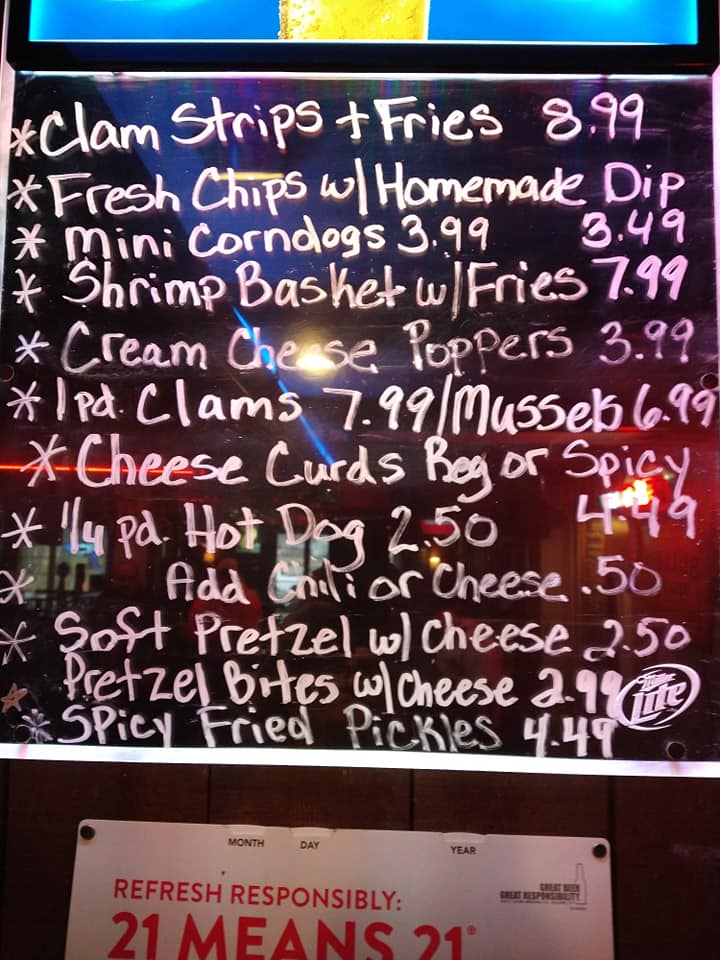 *Clam Strips + Fries 8.99
*Fresh Chips w/Homemade Dip
* Mini Corndogs 3.99 3.49
* Shrimp Basket w/Fries 7.99
* Cream Cheese Poppers 3.99
* 1 pd. Clams 7.99/Mussels 6.99
*Cheese Curds Reg or Spicy
* 1/4 pd. Hot Dog 2.50 4.49
* Add Chili or Cheese .50
* Soft Pretzel w/ Cheese 2.50
Pretzel Bites w/Cheese 2.99
Miller Lite
* Spicy Fried Pickles 4.49
MONTH DAY YEAR
REFRESH RESPONSIBLY:
21 MEANS 21®
GREAT BEER
GREAT RESPONSIBILITY